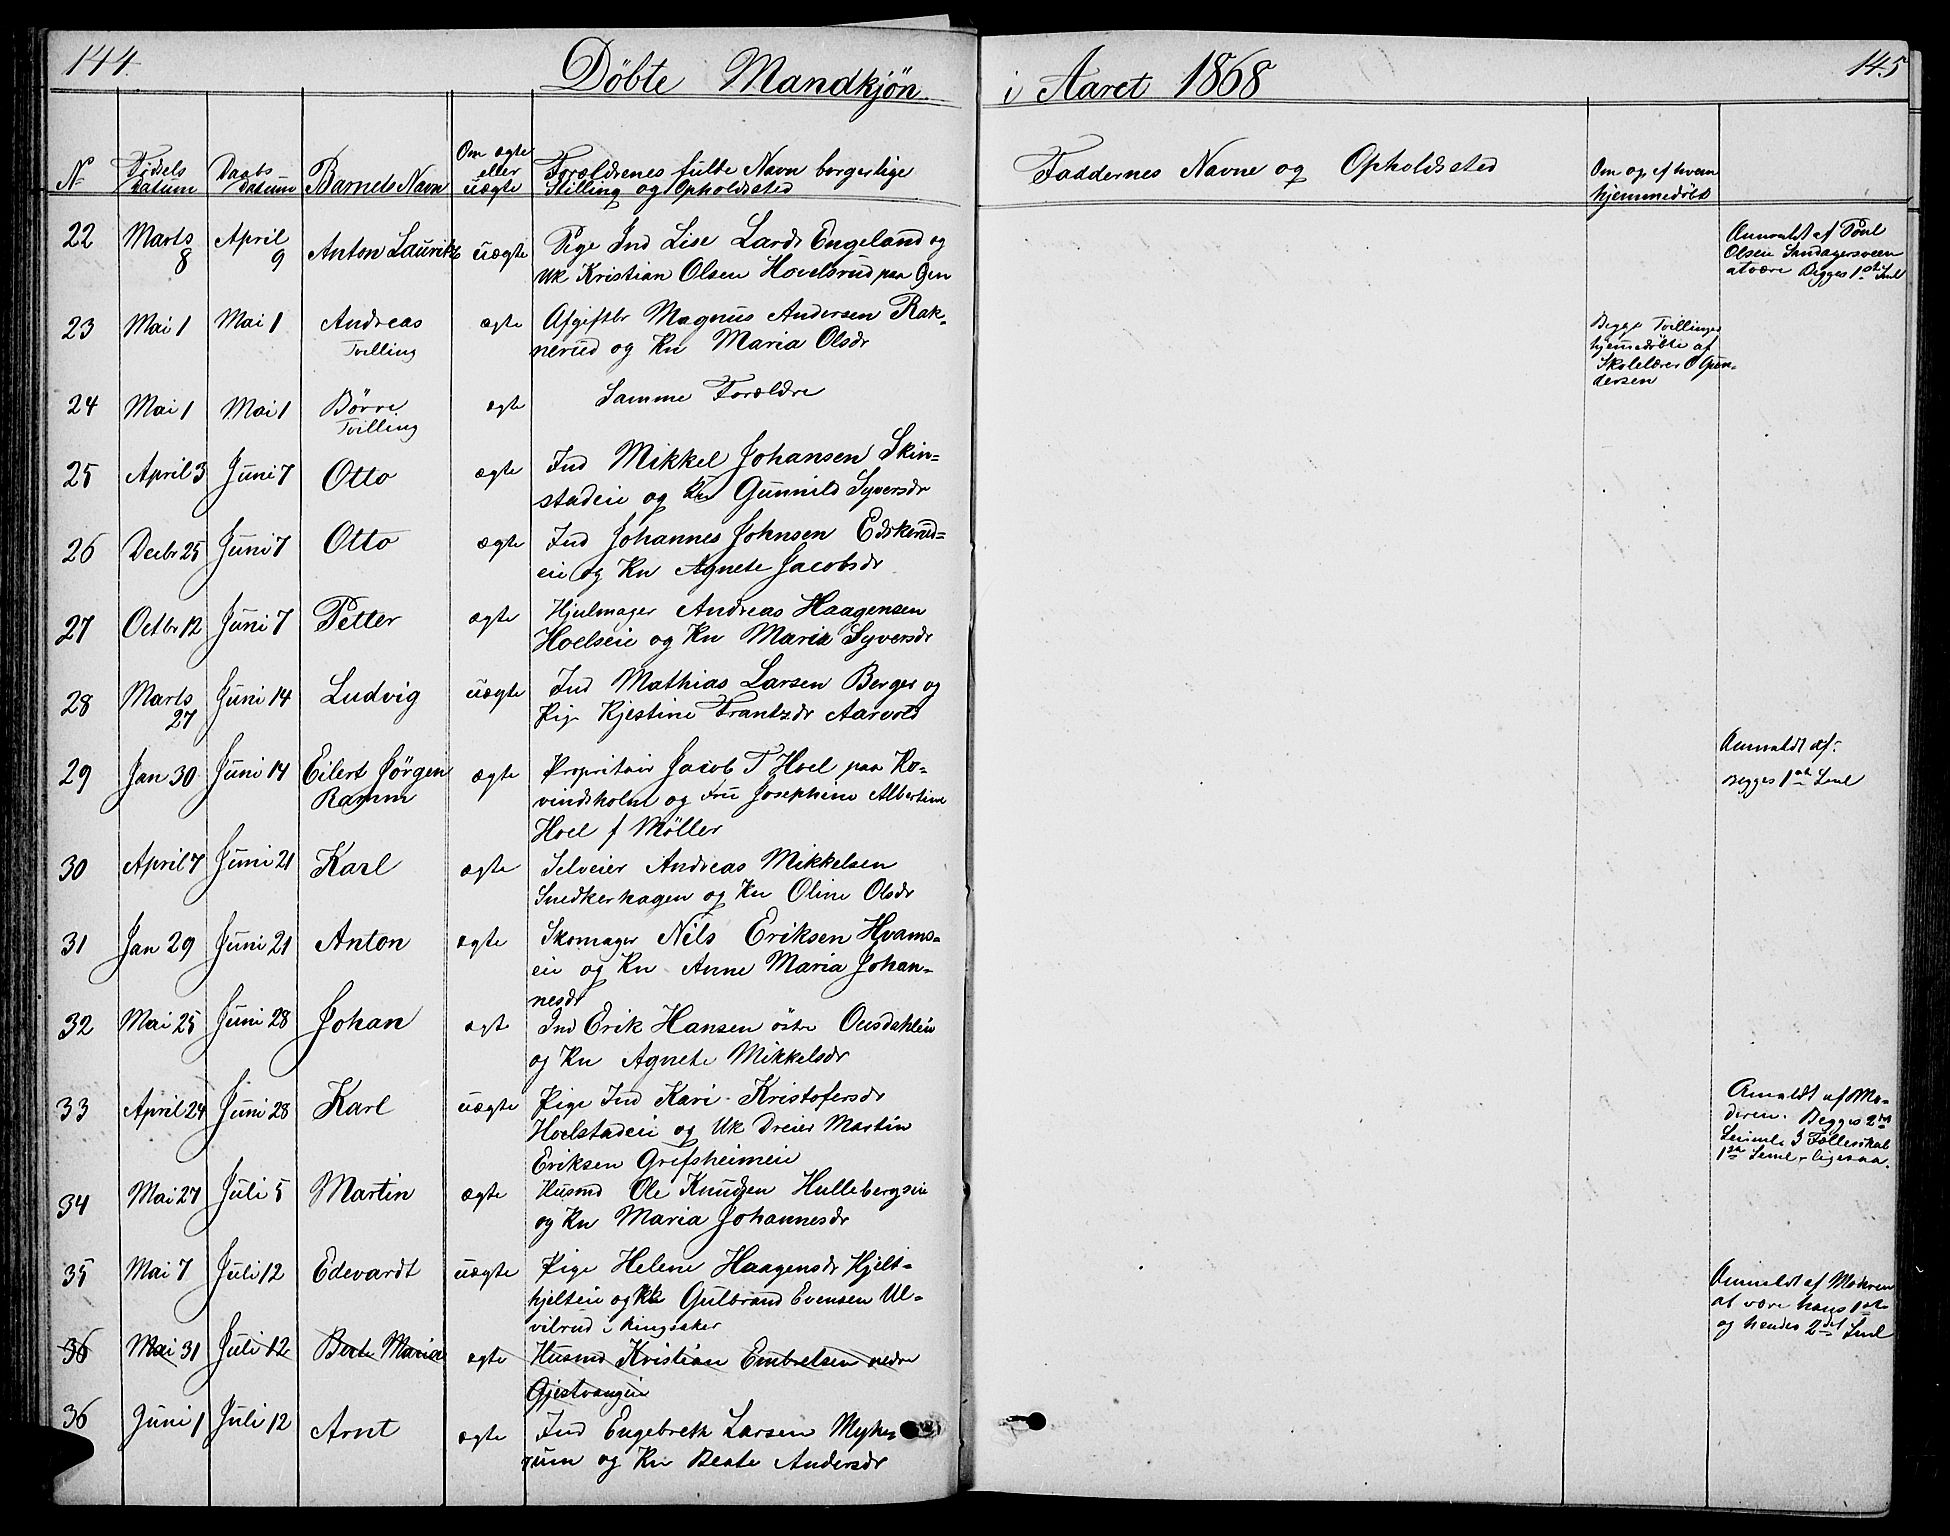 144. Döbte Mandkjön
i Aaret 1868 145
N Födsels Datum Daabs Datum Barnets Navn Om ægte eller uægte Forældrenes fulde Navn borgerlige Stilling og Opholdssted
Faddernes Navne og Opholdssted Om og af hvem hjemmedöbt
22 Marts 8 April 9 Anton Lauritz uægte Pige Ind Lise Larsdr Engeland og
Uk Kristian Olsen Hovelsrud paa
Anmeldt af Poul
Olsen Sandagersveen
at være Begges 1ste Leml
23 Mai 1 Mai 1 Andreas ægte Afgiftbr Magnus Andersen Rak-
Tvilling nerud og Kn Maria Olsdr
Begge Tvillinger
hjemmedöbte af
Skolelærer O Gun-
dersen
24 Mai 1 Mai 1 Börre ægte Samme Forældre
Tvilling
25 April 3 Juni 7 Otto ægte Ind Mikkel Johansen Skin-
stadeie og Kn Gunnild Syversdr
26 Decbr 25 Juni 7 Otto ægte Ind Johannes Johnsen Edskerud-
eie og Kn Agnete Jacobsdr
27 Octbr 12 Juni 7 Petter ægte Hjulmager Andreas Haagensen
Hoelseie og Kn Maria Syversdr
28 Marts 27 Juni 14 Ludvig uægte Ind Mathias Larsen Berger og
Pige Kjestine Frantzdr Aarvold
Anmeldt af:
Begges 1ste Leml
29 Jan 30 Juni 14 Eilert Jörgen ægte Propritair Jacob T Hoel paa Ho-
Ramm vindsholm og Fru Josephine Albertine
Hoel f Möller
30 April 7 Juni 21 Karl ægte Selveier Andreas Mikkelsen
Snedkerhagen og Kn Oline Olsdr
31 Jan 29 Juni 21 Anton ægte Skomager Nils Eriksen Hvams-
eie og Kn Anne Maria Johan-
nesdr
32 Mai 25 Juni 28 Johan ægte Ind Erik Hansen östre Ousdahleie
og Kn Agnete Mikkelsdr
33 April 24 Juni 28 Karl uægte Pige Ind Kari Kristofersdr
Hoelstadeie og Uk Dreier Martin
Eriksen Grefsheimeie
Anmeldt af Mo-
deren. Begges 2det
1ste Leml ligesaa.
34 Mai 27 Juli 5 Martin ægte Husmd Ole Knudsen Hullebergseie
og Kn Maria Johannesdr
35 Mai 7 Juli 12 Edevardt uægte Pige Helene Haagensdr Hjelt-
hjelteie og Uk Gulbrand Evensen Ul-
vilrud i Ringsaker
Anmeldt af Moderen
at være hans 1ste
og hendes 2det Leml
36 Mai 31 Juli 12 Berte Maria ægte Husmd Kristian Embretsen nedre
Gjestvangeie
36 Juni 1 Juli 12 Arnt ægte Ind Engebreth Larsen Myhe-
rum og Kn Beate Andersdr